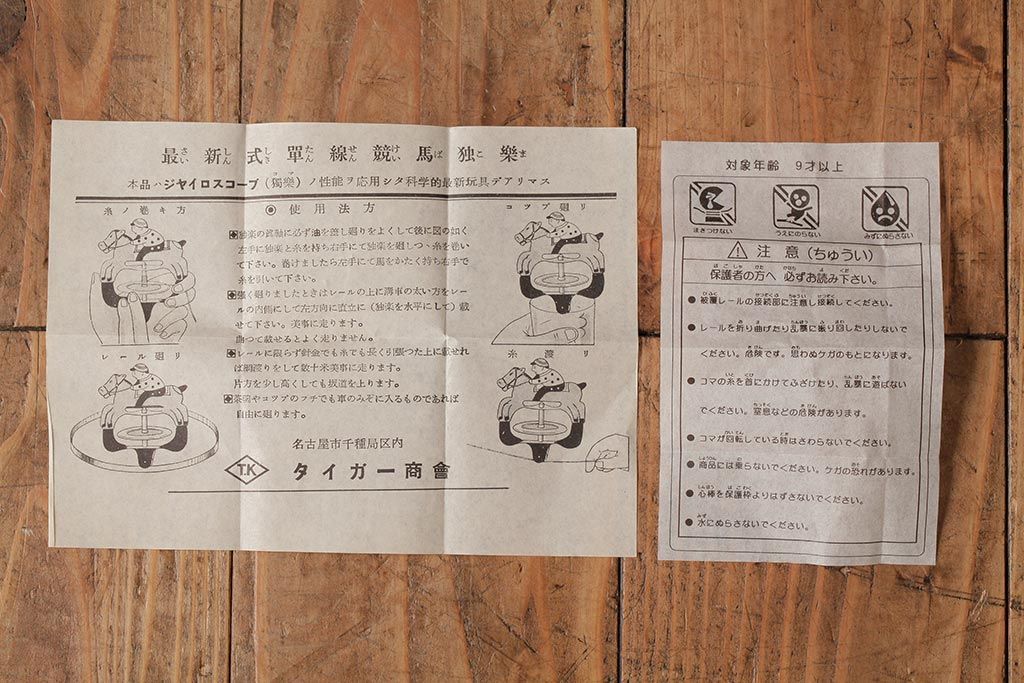 最新式單線競馬独樂
さいしんしきたんせんけいばこま
本品ハジヤイロスコープ(獨樂)ノ性能ヲ応用シタ科学的最新玩具デアリマス
コマ
糸ノ巻キ方
◉使用法方
コツプ廻リ
独楽の眞軸に必ず油を差し廻りをよくして後に図の如く
左手に独楽と糸を持ち右手にて独楽を廻しつゝ糸を巻い
て下さい。巻けましたら左手にて馬をかたく持ち右手で
糸を引いて下さい。
強く廻りましたときはレールの上に溝車の太い方をレー
ルの内側にして左方向に直立に(独楽を水平にして)載
せて下さい。美事に走ります。
曲つて載せるとよく走りません。
レール廻リ
糸渡リ
レールに限らず針金でも糸でも長く引張つた上に載せれ
ば綱渡りをして数十米美事に走ります。
片方を少し高くしても坂道を上ります。
茶碗やコツプのフチでも車のみぞに入るものであれば
自由に廻ります。
名古屋市千種局区内
T.K タイガー商會
対象年齢 9才以上
まきつけない
うえにのらない
みずにぬらさない
⚠注意(ちゅうい)
保護者の方へ 必ずお読み下さい。
ほごしゃ かた かなら よ くだ
●被覆レールの接続部に注意し接続してください。
●レールを折り曲げたり乱暴に振り回したりしないで
ください。危険です。思わぬケガのもとになります。
●コマの糸を首にかけてふざけたり、乱暴に遊ばない
でください。窒息などの危険があります。
●コマが回転している時はさわらないでください。
●商品には乗らないでください。ケガの恐れがあります。
●心棒を保護枠よりはずさないでください。
●水にぬらさないでください。